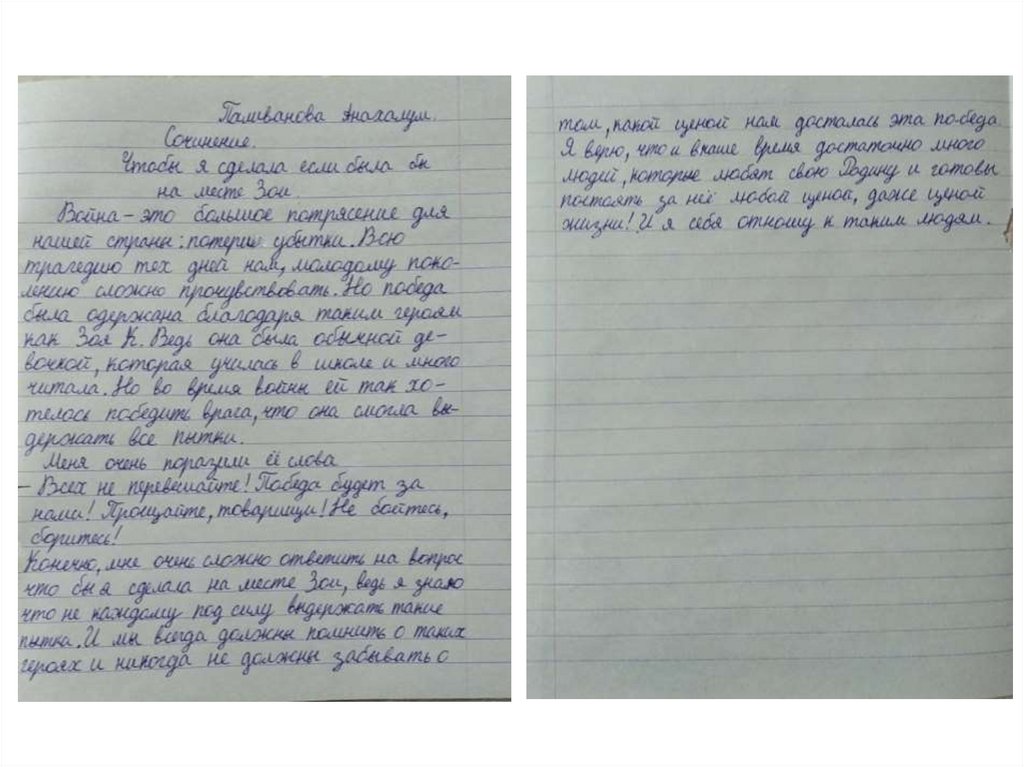 Паливанова Анахалум.
Сочинение.
Чтобы я сделала если была бы
на месте Зои.
Война – это большое потрясение для
нашей страны: потери и убытки. Всю
трагедию тех дней нам, молодому поко-
лению сложно прочувствовать. Но победа
была одержана благодаря таким героям
как Зоя К. Ведь она была обычной де-
вочкой, которая училась в школе и много
читала. Но во время войны ей так хо-
телось победить врага, что она смогла вы-
держать все пытки.
Меня очень поразили её слова
– Всех не перевешайте! Победа будет за
нами! Прощайте, товарищи! Не бойтесь,
боритесь!
Конечно, мне очень сложно ответить на вопрос
что бы я сделала на месте Зои, ведь я знаю
что не каждому под силу выдержать такие
пытка. И мы всегда должны помнить о таких
героях и никогда не должны забывать о
том, какой ценой нам досталась эта победа.
Я верю, что и в наше время достаточно много
людей, которые любят свою Родину и готовы
постоять за неё любой ценой, даже ценой
жизни! И я себя отношу к таким людям.